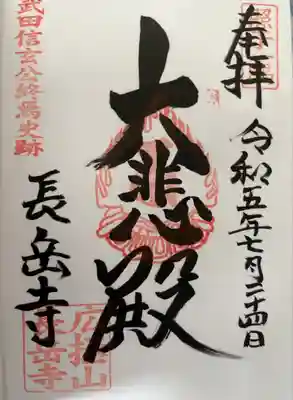 奉拝
令和五年七月二十四日
大悲殿
武田信玄公終焉史跡
長岳寺
広拯山
長岳寺